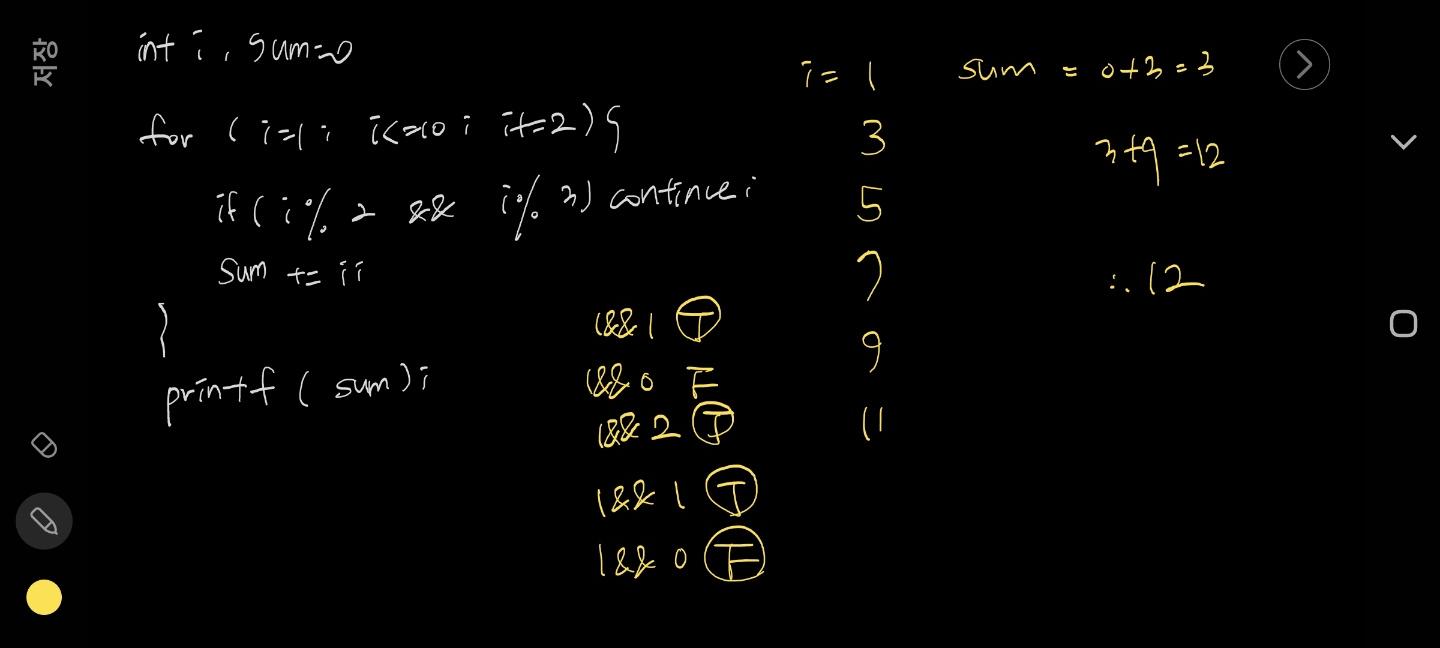 저장
int i, sum=0
for (i=1; i<=10; i+=2){
if(i%2 && i%3) continue;
sum += i;
}
printf(sum);
1&&1 T
1&&0 F
1&&2 T
1&&1 T
1&&0 F
i= 1
3
5
7
9
11
sum = 0+3=3
3+9=12
∴ 12